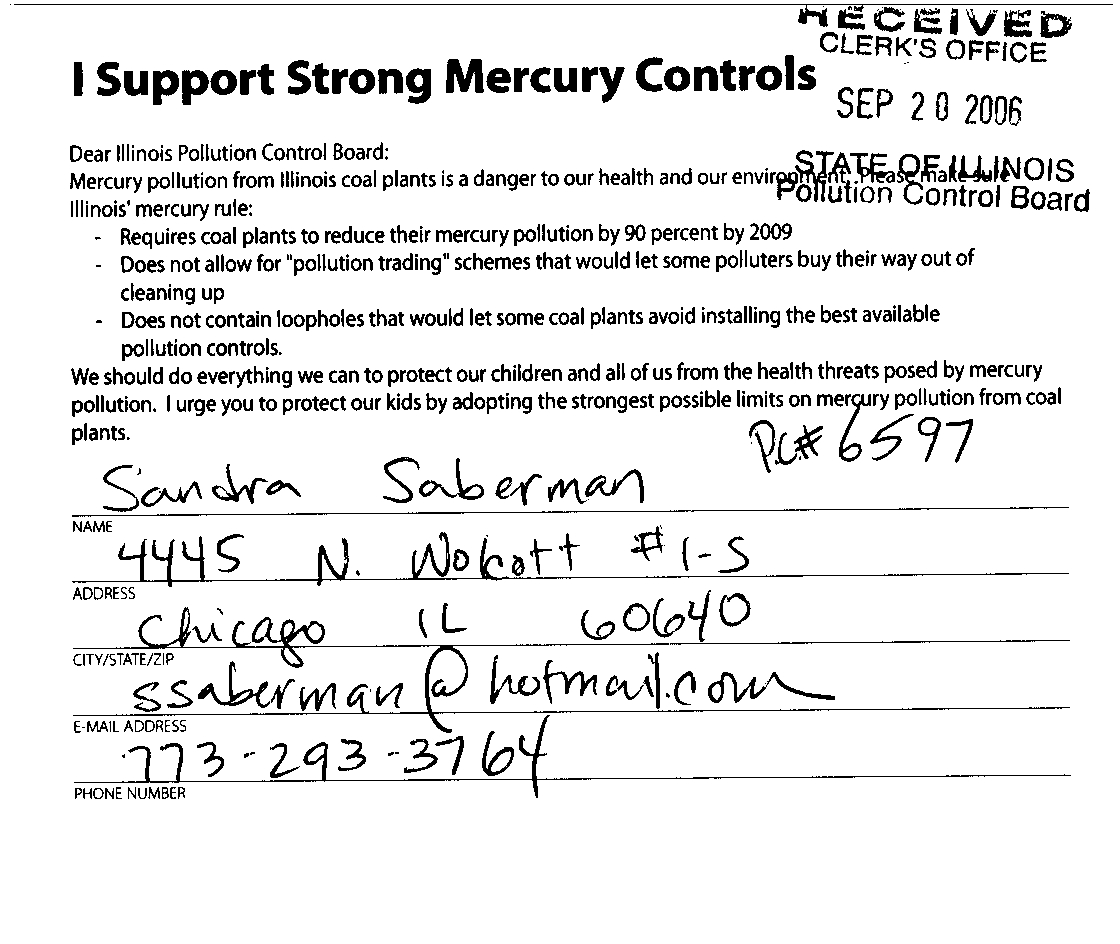 RECEIVED
CLERK'S OFFICE
I Support Strong Mercury Controls
SEP 20 2006
STATE OF ILLINOIS
Pollution Control Board
Dear Illinois Pollution Control Board:
Mercury pollution from Illinois coal plants is a danger to our health and our environment. Please make sure
Illinois' mercury rule:
- Requires coal plants to reduce their mercury pollution by 90 percent by 2009
- Does not allow for "pollution trading" schemes that would let some polluters buy their way out of
cleaning up
- Does not contain loopholes that would let some coal plants avoid installing the best available
pollution controls.
We should do everything we can to protect our children and all of us from the health threats posed by mercury
pollution. I urge you to protect our kids by adopting the strongest possible limits on mercury pollution from coal
plants.
P.C# 6597
Sandra Saberman
NAME
4445 N. Wolcott #1-S
ADDRESS
Chicago IL 60640
CITY/STATE/ZIP
ssaberman@hotmail.com
E-MAIL ADDRESS
773-293-3764
PHONE NUMBER